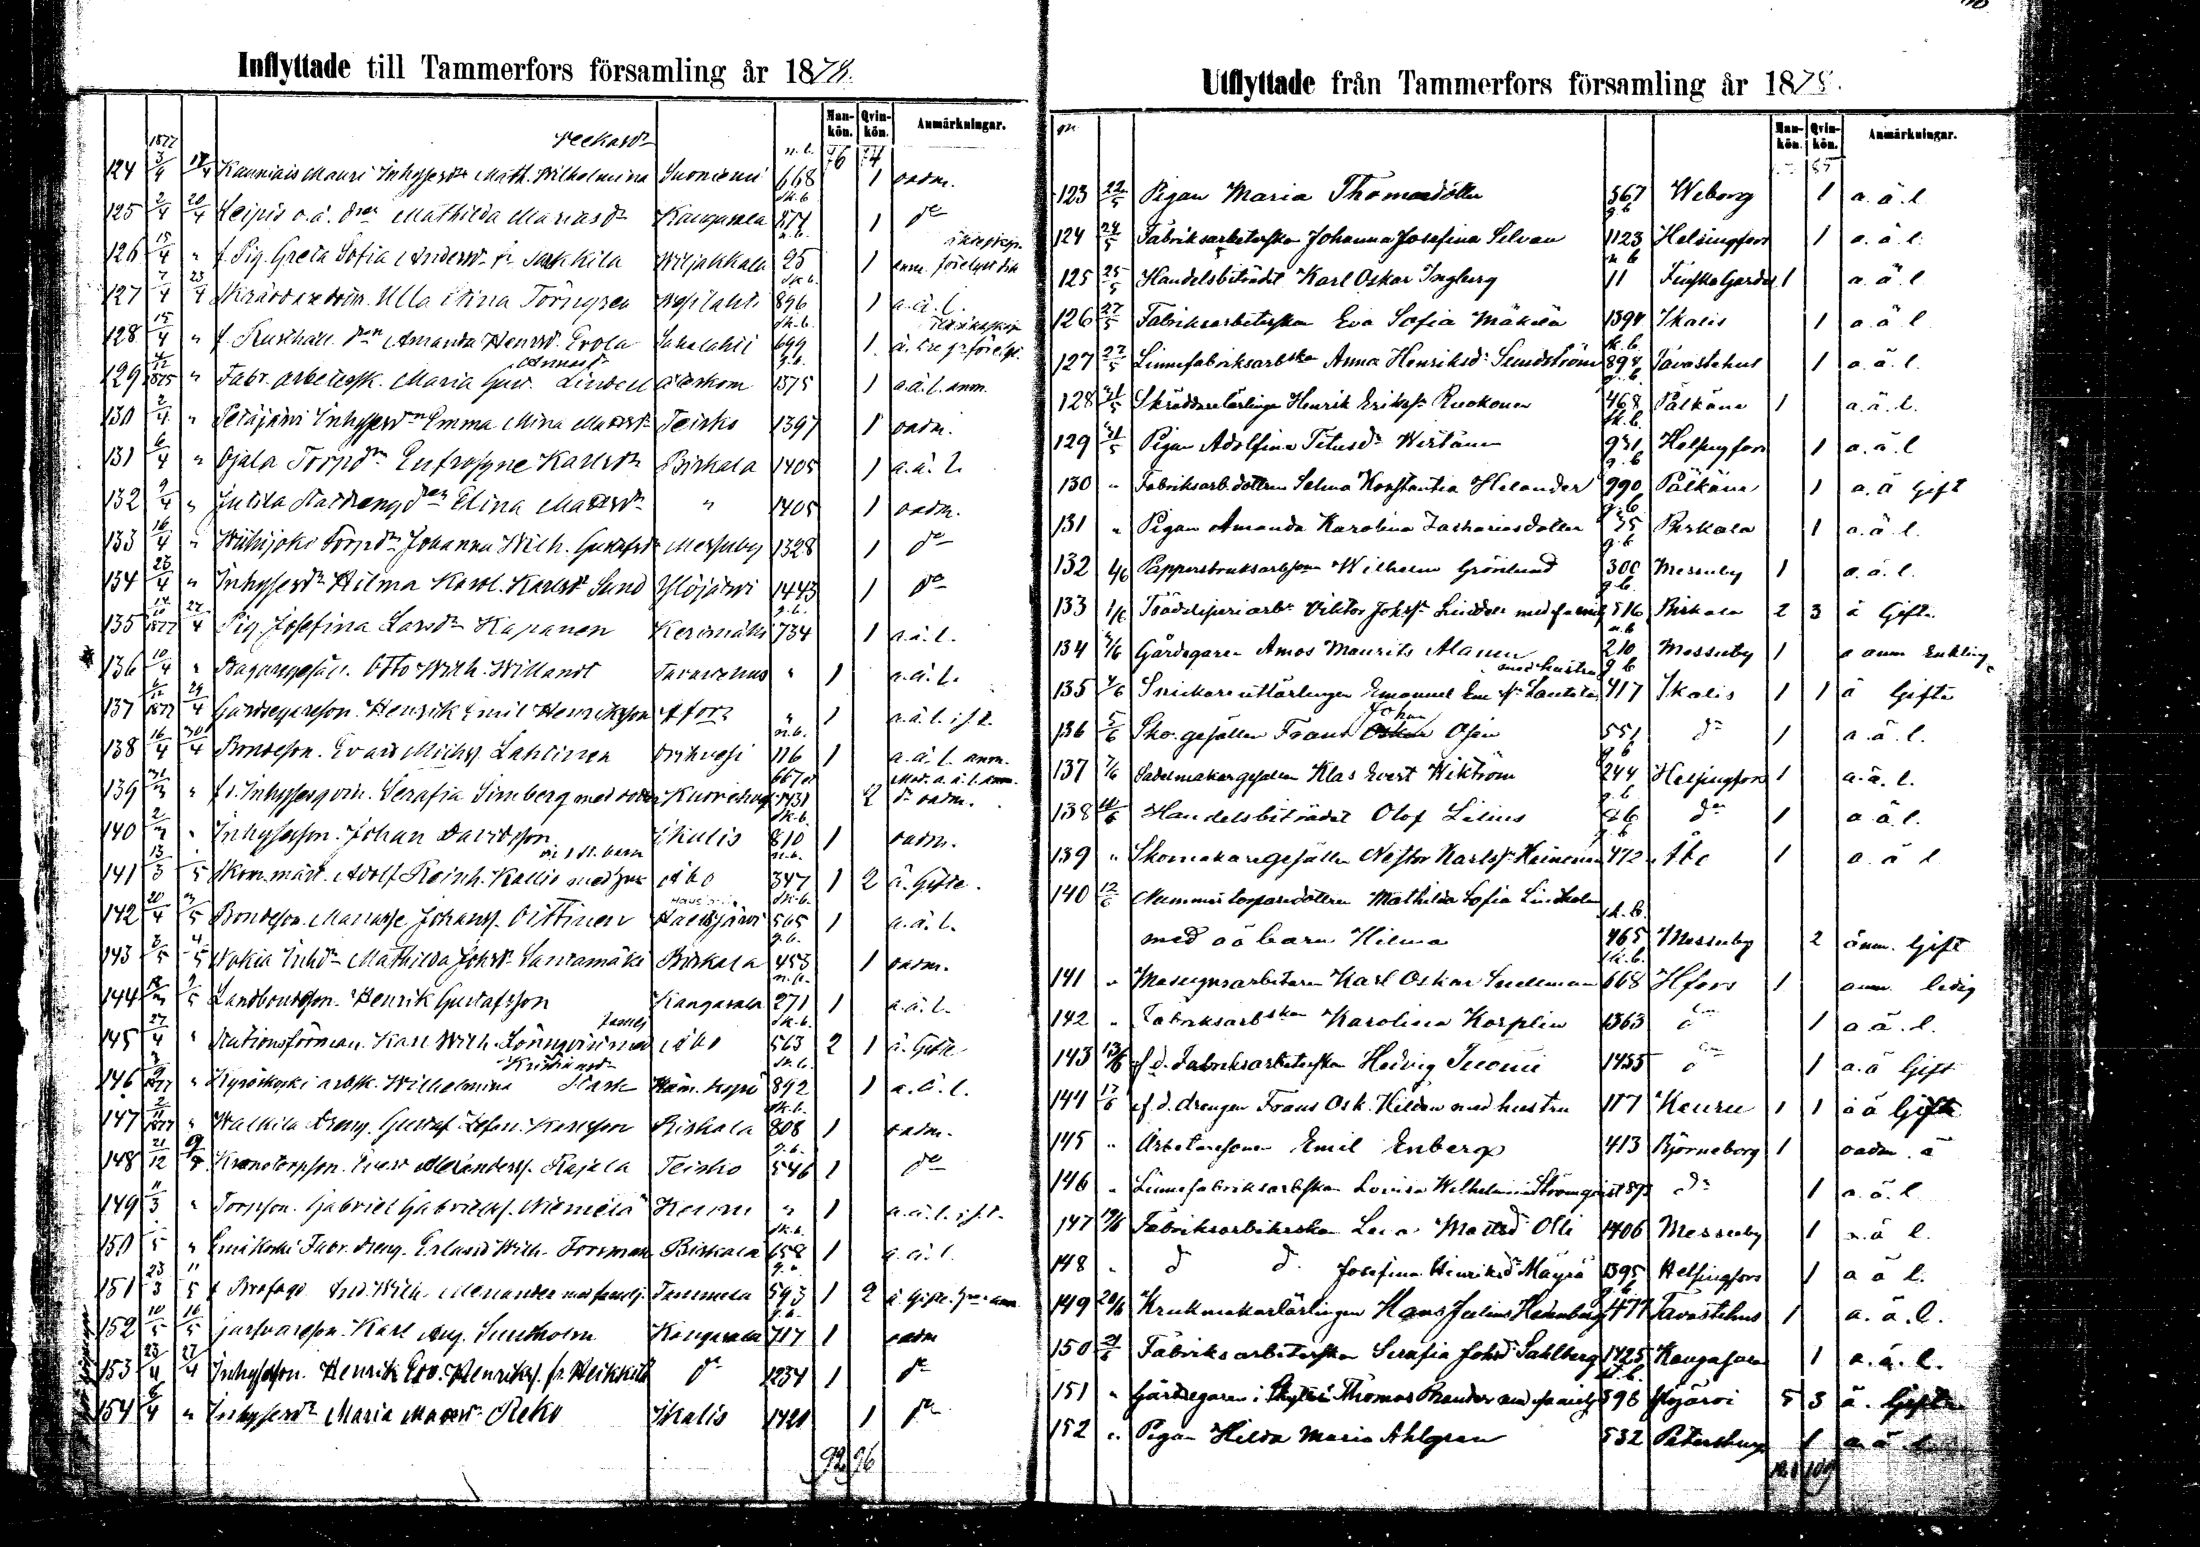 Inflyttade till Tammerfors församling år 1878.
Man-kön. Qvin-kön. Anmärkningar.
1877 n. b. 76 74
124 3/4 17/4 Kauniais Mauri Inhysesdr Math. Wilhelmina Suoniemi 668 1 oadm.
125 2/4 20/4 Leipis o.ä. dren Mathilda Mariasdr Kangasala 874 1 do
126 15/4 " f. Pig. Greta Sofia Andersdr fr Wiljakkala 25 1
127 7/4 23/4 Ulla Stina Törngren Wesilahti 896 1 a.ä.l.
128 15/4 " f. Rusthåll. dren Amanda Henrsd. Erola Sahalahti 699 1
129 1875 " Fabr. arbetersk. Maria Gust. Lindell 1375 1 a.ä.l. anm.
130 2/4 " Petäjärvi Inhysesdrn Emma Mina Matsdr Teisko 1397 1 oadm.
131 6/4 " Ojala Torpdrn Eufrosyne Karlsdr Birkala 1405 1 a.ä.l.
132 9/4 " Elina Matsdr " 1405 1 oadm.
133 16/4 " Torpdrn Johanna Wilh. Gustafsdr Messuby 1328 1 do
134 23/4 " Inhysesdr Hilma Karol. Karlsdr Sund Ylöjärvi 1443 1 do
135 1877 27/4 Pig. Josefina Larsdr Kapanen Kerimäki 734 1 a.ä.l.
136 10/4 " Bagaregesäll. Otto Wilh. Willandt Tavastehus " 1 a.ä.l.
137 1877 29/4 Gårdsegareson. Henrik Emil Henriksson Åfors " 1 a.ä.l. i.f.t.
138 16/4 30/4 Bondeson. Evart Lahtinen Orihvesi 116 1 a.ä.l. anm.
139 " f.i. Inhysesqvin. Serafia Simberg med dotter Kuorehvesi 1431 2 do oadm.
140 " Inhysesson. Johan Davidsson Ikalis 810 1 oadm.
141 13/3 /5 Skom. mäst. Adolf Reinh. Kallio med hustru o. 1 sk. barn Åbo 347 1 2 ä. Gifte.
142 20/4 3/5 Bondeson. Manasse Johanss. Oittinen 505 1 a.ä.l.
143 3/5 4/5 Nokia Inhdr Mathilda Johsdr Santamäki Birkala 453 1 oadm.
144 /5 Landbondson. Henrik Gustafsson Kangasala 271 1 a.ä.l.
145 27/4 " Stationsförman. Karl Wilh. Lönnqvist med familj Åbo 563 2 1 ä. Gifte
146 1877 " Kyröskoski arbsk. Wilhelmina Kristiansdr Stark Ham. kyrö 892 1 a.ä.l.
147 1877 " Walkila Dreng. Gustaf Karlsson Birkala 808 1 oadm.
148 21/12 Kronotorpson. Evert Alexanderss. Rajala Teisko 546 1 do
149 11/3 " Torpson. Gabriel Gabrielss. Niemelä Keuru " 1 a.ä.l. i.f.t.
150 /5 " Fabr. dreng. Erland Wilh. Forsman Birkala 658 1 a.ä.l.
151 23/3 11/5 Wilh. Menander med familj Tammela 593 1 2
152 10/5 16/5 Karl Aug. Sundholm Kangasala 717 1 oadm
153 23/4 27/4 Inhysesson. Henrik Edv. Henrikss. fr. Heikkilä do 1234 1 do
154 6/4 " Inhysesdr Maria Matsdr Reko Ikalis 1421 1 do
92 96
Utflyttade från Tammerfors församling år 1878.
Man-kön. Qvin-kön. Anmärkningar.
123 22/5 Pigan Maria Thomasdotter 567 Wiborg 1 a.ä.l.
124 24/5 Fabriksarbeterskan Johanna Josefina Silvan 1123 Helsingfors 1 a.ä.l.
125 25/5 Handelsbiträdet Karl Oskar Ingberg 11 Finska Gardet 1 a.ä.l.
126 27/5 Fabriksarbeterskan Eva Sofia Mäkelä 1394 Ikalis 1 a.ä.l.
127 27/5 Linnefabriksarbskan Anna Henriksdr Sundström 894 Tavastehus 1 a.ä.l.
128 31/5 Skräddarelärlingen Henrik Erikss. Ruokonen 468 Pälkäne 1 a.ä.l.
129 31/5 Pigan Adolfina Titusdr Wirtanen 931 Helsingfors 1 a.ä.l.
130 " Fabriksarb.dottren Selma Konstantia Helander 990 Pälkäne 1 a.ä Gift
131 " Pigan Amanda Karolina Zachariasdotter 35 Birkala 1 a.ä.l.
132 1/6 Pappersbruksarbson Wilhelm Grönlund 300 Messuby 1 a.ä.l.
133 1/6 Trädsliperiarb. Viktor Johss. Lindell med familj 516 Birkala 2 3 ä Gifte
134 3/6 Gårdegaren Amos Maurits Alanen 210 Messuby 1 a anm Enkling
135 4/6 Snickareutlärlingen Emanuel Em.s. Lautala med hustru 417 Ikalis 1 1 ä Gifte
136 5/6 Sko.gesällen Frans Johan Osin 551 do 1 a.ä.l.
137 7/6 Sadelmakargesällen Klas Evert Wikström 244 Helsingfors 1 a.ä.l.
138 10/6 Handelsbiträdet Olof Lilius 86 do 1 a.ä.l.
139 " Skomakaregesällen Nestor Karlss. Heinonen 472 Åbo 1 a.ä.l
140 12/6 Nummis torparedottren Mathilda Sofia Lindholm
med oä barn Hilma 465 Messuby 2 änm. Gift
141 " Masugnsarbetaren Karl Oskar Snellman 668 Hfors 1 anm. ledig
142 " Fabriksarbskan Karolina Korplin 1363 do 1 a.ä.l.
143 13/6 f.d. Fabriksarbeterskan Hedvig Tuomi 1455 do 1 a.ä Gift
144 17/6 f.d. drengen Frans Osk. Hildén med hustru 117 Keuru 1 1 a ä Gifte
145 " Arbetaresonen Emil Enberg 413 Björneborg 1 oadm. ä
146 " Linnefabriksarbskan Lovisa Wilhelmina Strömqvist 893 do 1 a.ä.l
147 19/6 Fabriksarbeterskan Leena Matsdr Olli 1406 Messuby 1 a.ä l.
148 " d d. Josefina Henriksdr Mäyrä 1395 Helsingfors 1 a ä l.
149 20/6 Krukmakarlärlingen Hans Julius Hedenberg 477 Tavastehus 1 a.ä.l.
150 21/6 Fabriksarbeterskan Serafia Johsdr Sahlberg 1425 Kangasala 1 a.ä.l.
151 " Gårdegaren i Thomas Brander med familj 398 5 3 ä. Gifte
152 " Pigan Hilda Maria Ahlgren 532 Petersburg 1 a.ä.l.
109